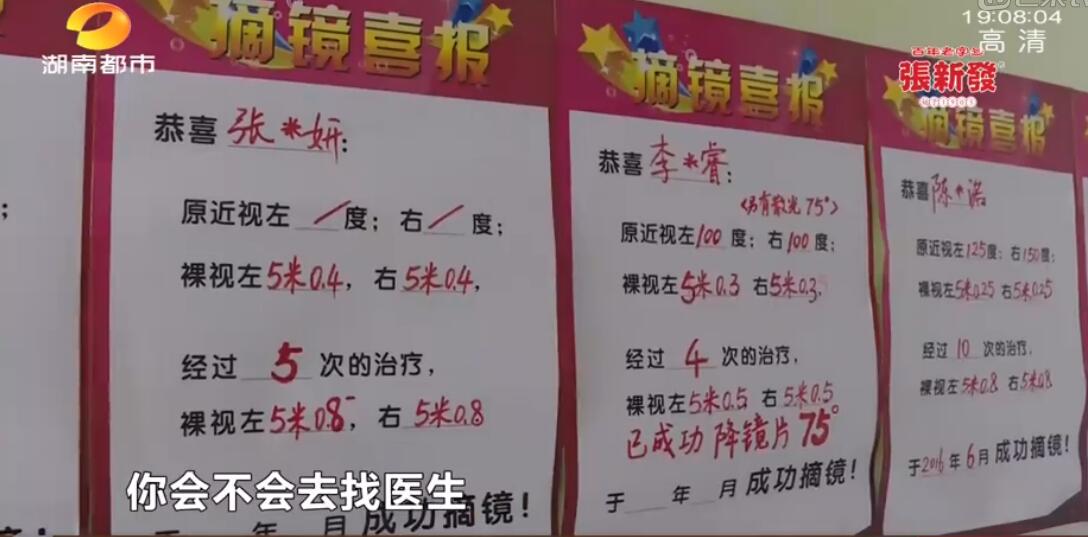 湖南都市
19:08:04
高清
百年老字号
張新發
摘镜喜报
恭喜 张*妍:
原近视左 / 度; 右 / 度;
裸视左5米0.4, 右5米0.4,
经过 5 次的治疗,
裸视左5米0.8-, 右5米0.8
年 月 成功摘镜!
摘镜喜报
恭喜 李*睿:
<另有散光75°>
原近视左100度; 右100度;
裸视左5米0.3 右5米0.3,
经过 4 次的治疗,
裸视左5米0.5 右5米0.5
已成功降镜片75°
于 年 月 成功摘镜!
摘镜喜报
恭喜 陈*诺
原近视左125度; 右150度;
裸视左5米0.25 右5米0.25
经过 10 次的治疗,
裸视左5米0.8 右5米0.8
于2016年6月成功摘镜!
你会不会去找医生